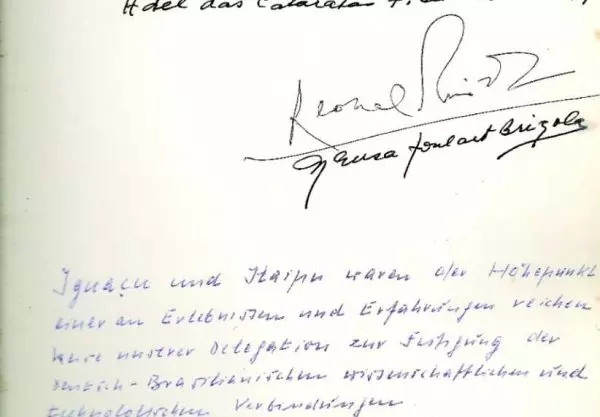 Hotel das Cataratas
Leonel Brizola
Neusa Goulart Brizola
Iguaçu und Itaipu waren der Höhepunkt
einer an Erlebnissen und Erfahrungen reichen
Reise unserer Delegation zur Festigung der
Deutsch-Brasilianischen wissenschaftlichen und
technologischen Verbindungen